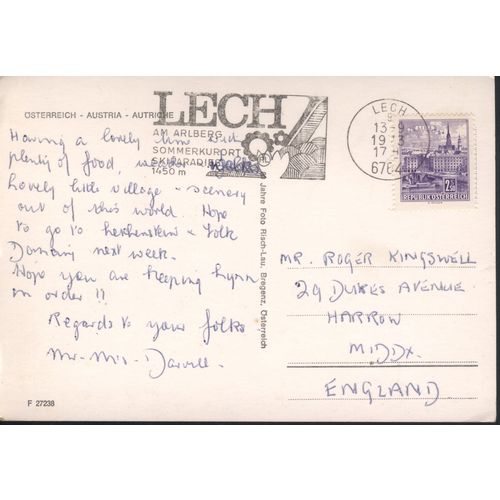 ÖSTERREICH - AUSTRIA - AUTRICHE
LECH
AM ARLBERG
SOMMERKURORT
SKIPARADIES
1450 m
LECH
13-9
1973
17
6764
2S
REPUBLIK ÖSTERREICH
Having a lovely time with
plenty of food, water
Lovely little village - scenery
out of this world. Hope
to go to &
next week.
Hope you are keeping Lynn
in order !!
Regards to your folks
Mr. Mrs. Darvell.
Jahre Foto Risch-Lau, Bregenz, Österreich
MR. ROGER KINGSWELL
29 DUKES AVENUE
HARROW
MIDDX.
ENGLAND
F 27238